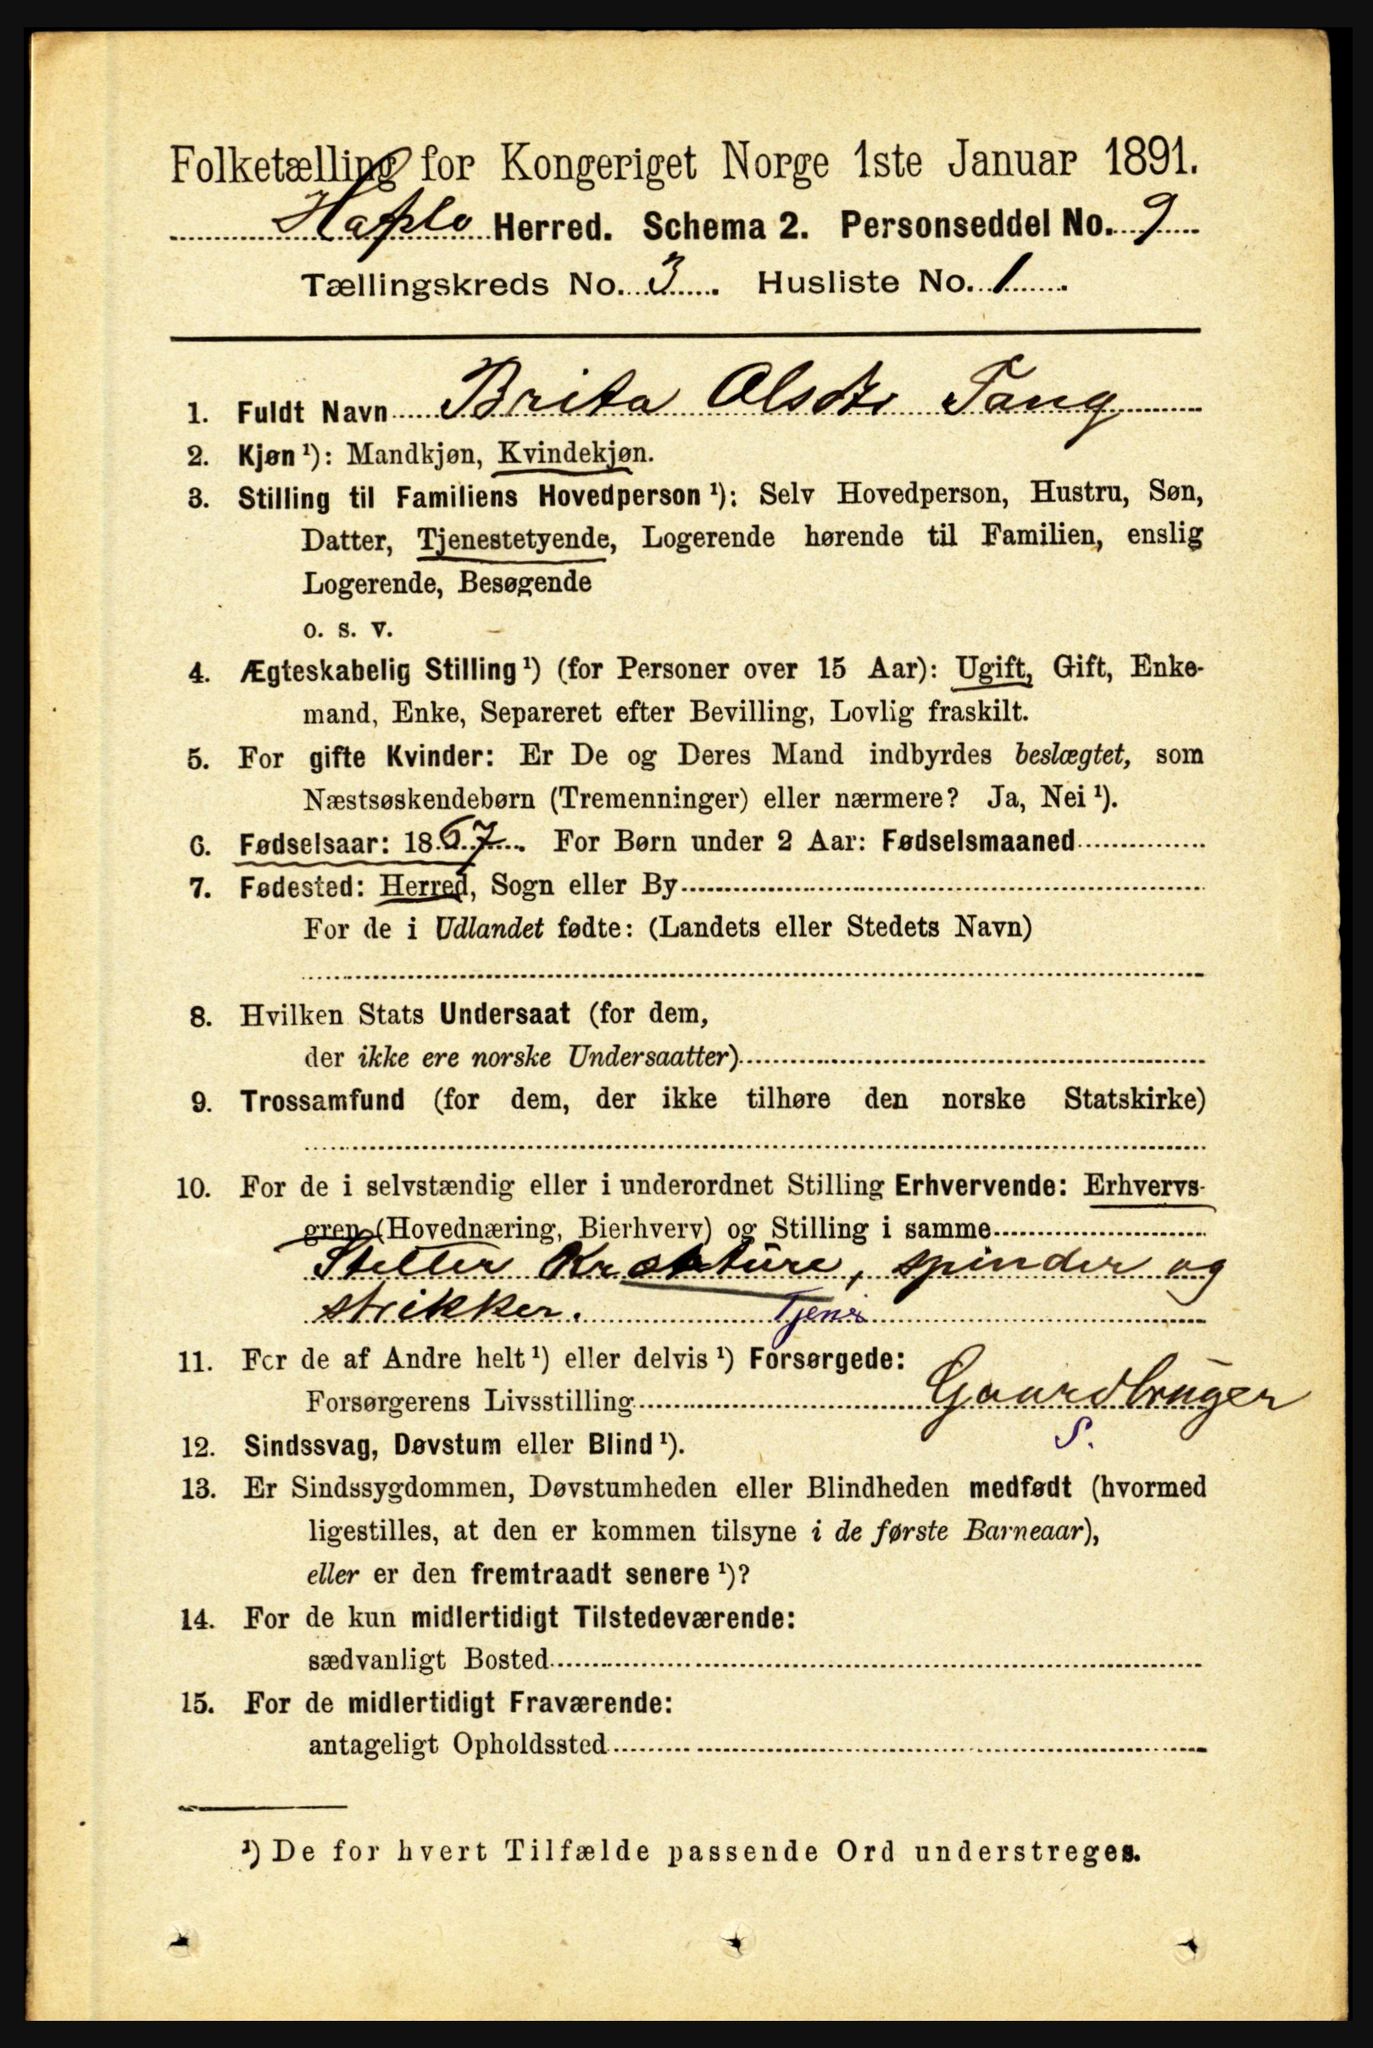 Folketælling for Kongeriget Norge 1ste Januar 1891.
Hafslo Herred. Schema 2. Personseddel No. 9
Tællingskreds No. 3. Husliste No. 1
1. Fuldt Navn Brita Olsdtr Tang
2. Kjøn ¹): Mandkjøn, Kvindekjøn.
3. Stilling til Familiens Hovedperson ¹): Selv Hovedperson, Hustru, Søn,
Datter, Tjenestetyende, Logerende hørende til Familien, enslig
Logerende, Besøgende
o. s. v.
4. Ægteskabelig Stilling ¹) (for Personer over 15 Aar): Ugift, Gift, Enke-
mand, Enke, Separeret efter Bevilling, Lovlig fraskilt.
5. For gifte Kvinder: Er De og Deres Mand indbyrdes beslægtet, som
Næstsøskendebørn (Tremenninger) eller nærmere? Ja, Nei ¹).
6. Fødselsaar: 1867. For Børn under 2 Aar: Fødselsmaaned
7. Fødested: Herred, Sogn eller By
For de i Udlandet fødte: (Landets eller Stedets Navn)
8. Hvilken Stats Undersaat (for dem,
der ikke ere norske Undersaatter)
9. Trossamfund (for dem, der ikke tilhøre den norske Statskirke)
10. For de i selvstændig eller i underordnet Stilling Erhvervende: Erhvervs-
gren (Hovednæring, Bierhverv) og Stilling i samme
Steller Kræature, spinder og
strikker. Tjener
11. For de af Andre helt ¹) eller delvis ¹) Forsørgede:
Forsørgerens Livsstilling Gaardbruger
12. Sindssvag, Døvstum eller Blind ¹). S.
13. Er Sindssygdommen, Døvstumheden eller Blindheden medfødt (hvormed
ligestilles, at den er kommen tilsyne i de første Barneaar),
eller er den fremtraadt senere ¹)?
14. For de kun midlertidigt Tilstedeværende:
sædvanligt Bosted
15. For de midlertidigt Fraværende:
antageligt Opholdssted
¹) De for hvert Tilfælde passende Ord understreges.